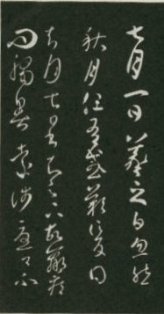 七月一日羲之白忽然
秋月但有感歎信反得
去月七日書知足下故羸疾
問觸暑遠涉憂卿不